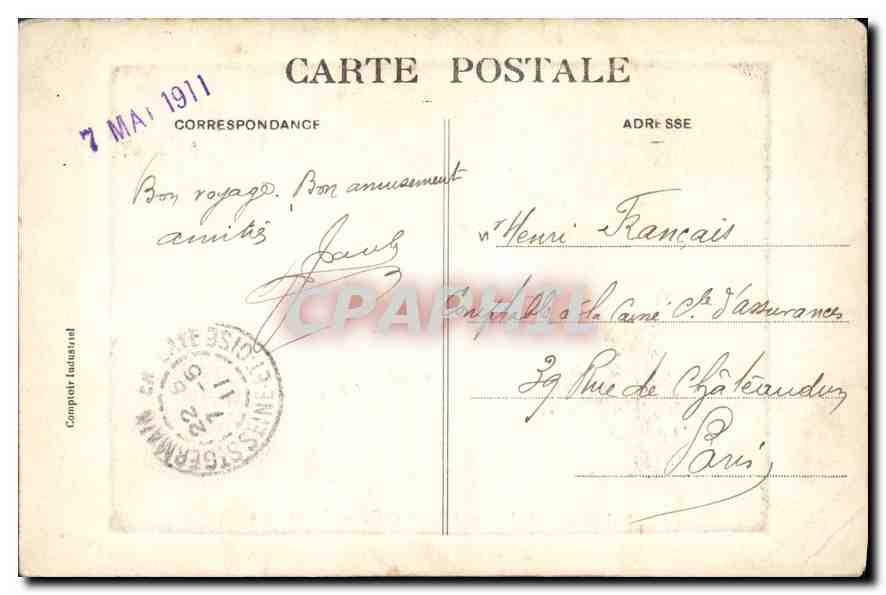 CARTE POSTALE
7 MAI 1911
CORRESPONDANCE
ADRESSE
Bon voyage. Bon amusement
amitiés
Paul
Mr Henri Français
Comptable à la Cie d'assurances
39 Rue de Châteaudun
Paris
Comptoir Industriel
ST GERMAIN EN LAYE SEINE ET OISE
22 6-5 11
CPAPHIL